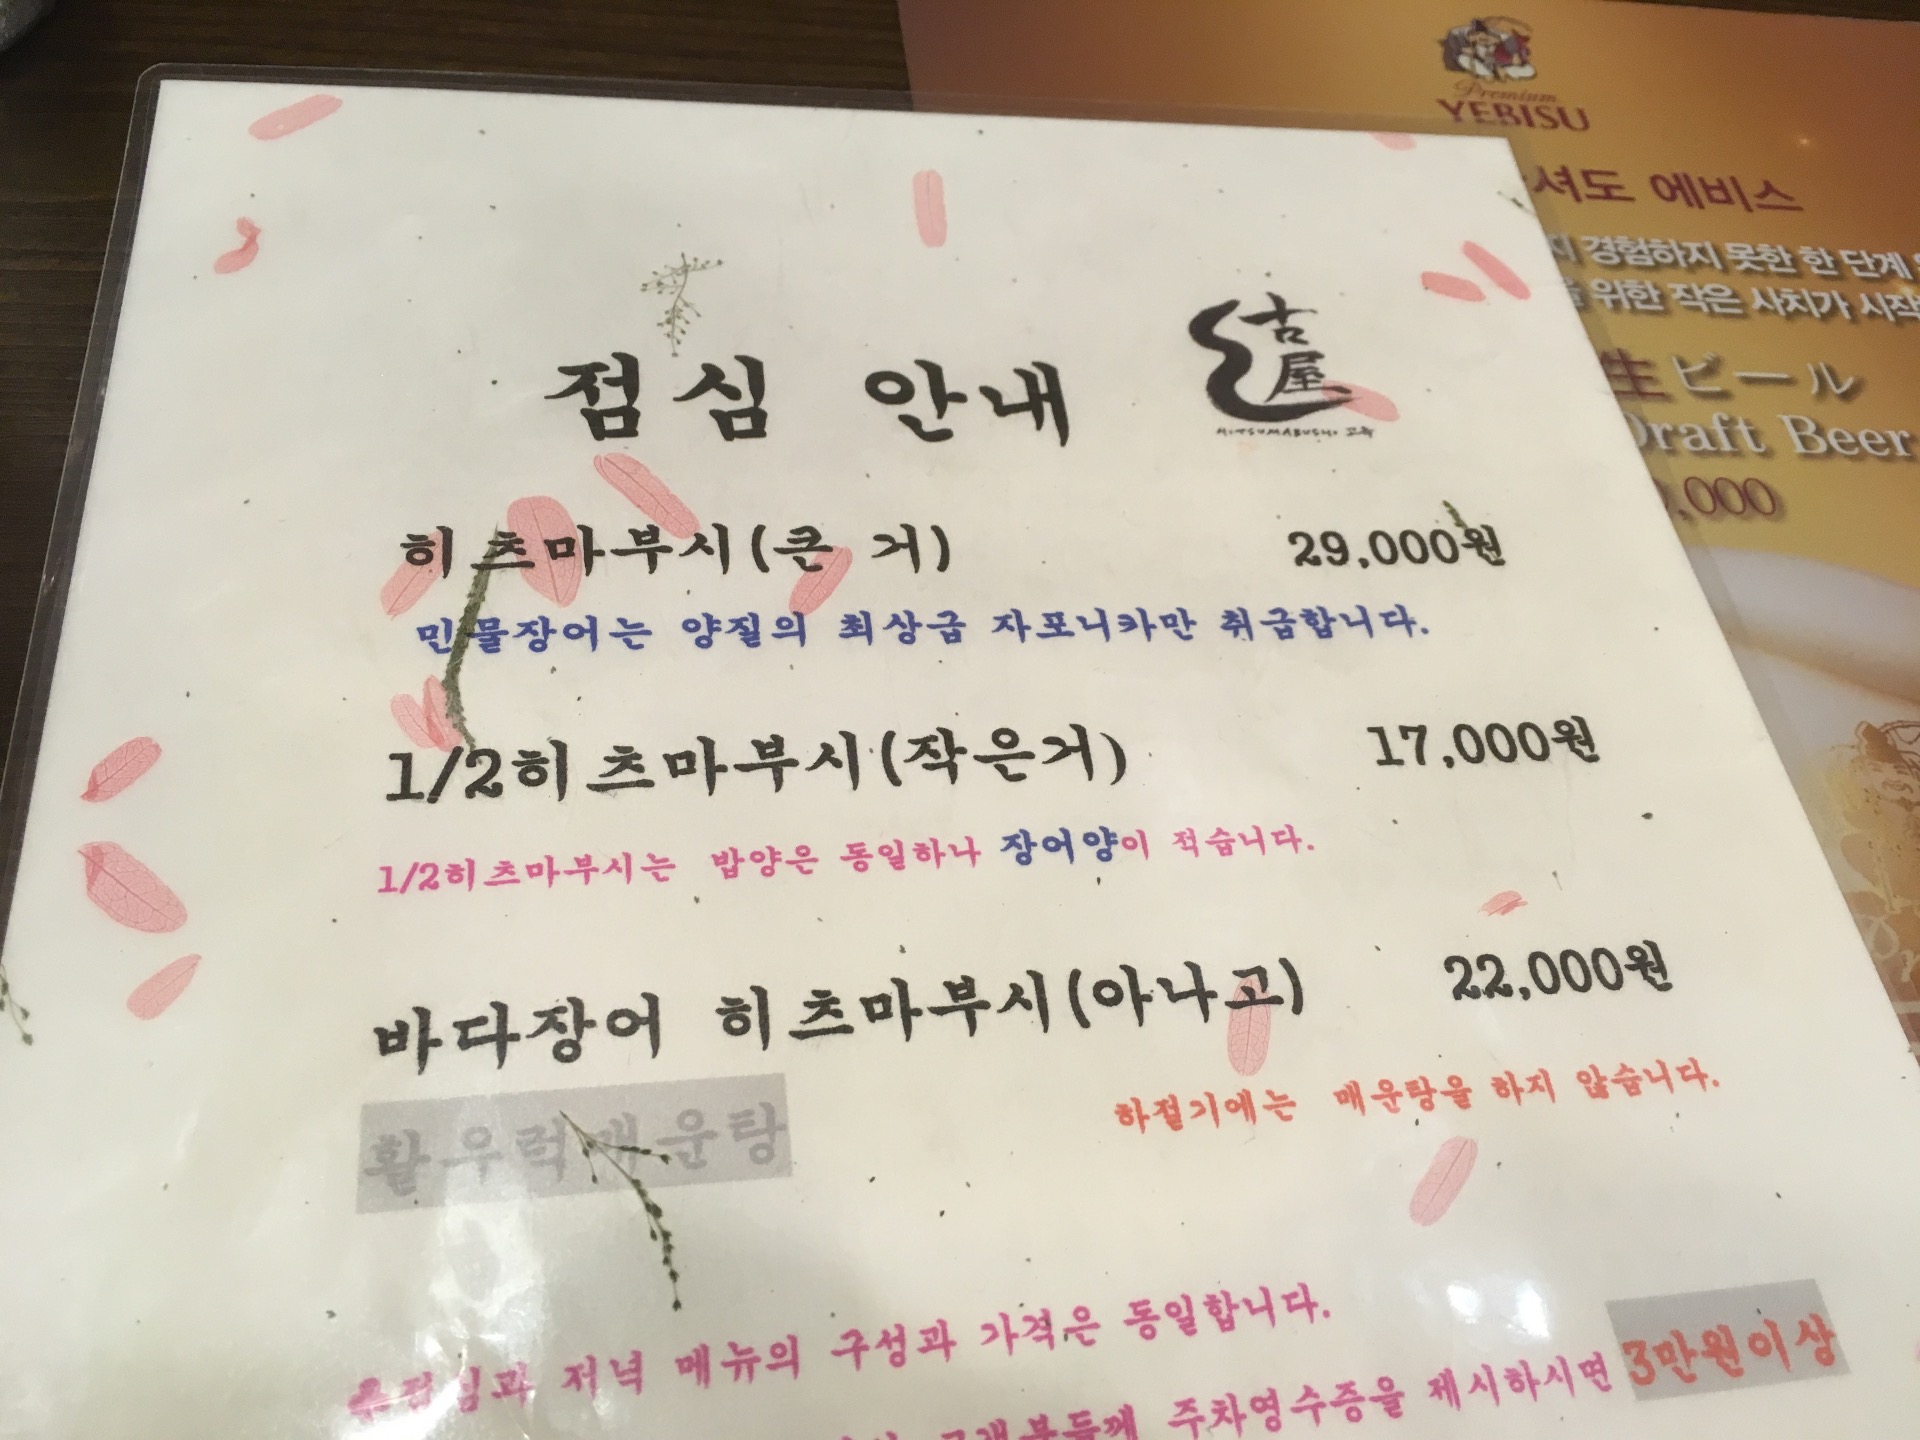 점심 안내
古屋
HITSUMABUSHI 고옥
히츠마부시(큰 거) 29,000원
민물장어는 양질의 최상급 자포니카만 취급합니다.
1/2히츠마부시(작은거) 17,000원
1/2히츠마부시는 밥양은 동일하나 장어양이 적습니다.
바다장어 히츠마부시(아나고) 22,000원
활우럭매운탕 하절기에는 매운탕을 하지 않습니다.
저녁 메뉴의 구성과 가격은 동일합니다.
고객분들께 주차영수증을 제시하시면 3만원이상
Premium
YEBISU
셔도 에비스
경험하지 못한 한 단계
위한 작은 사치가 시작
生ビール
Draft Beer
,000